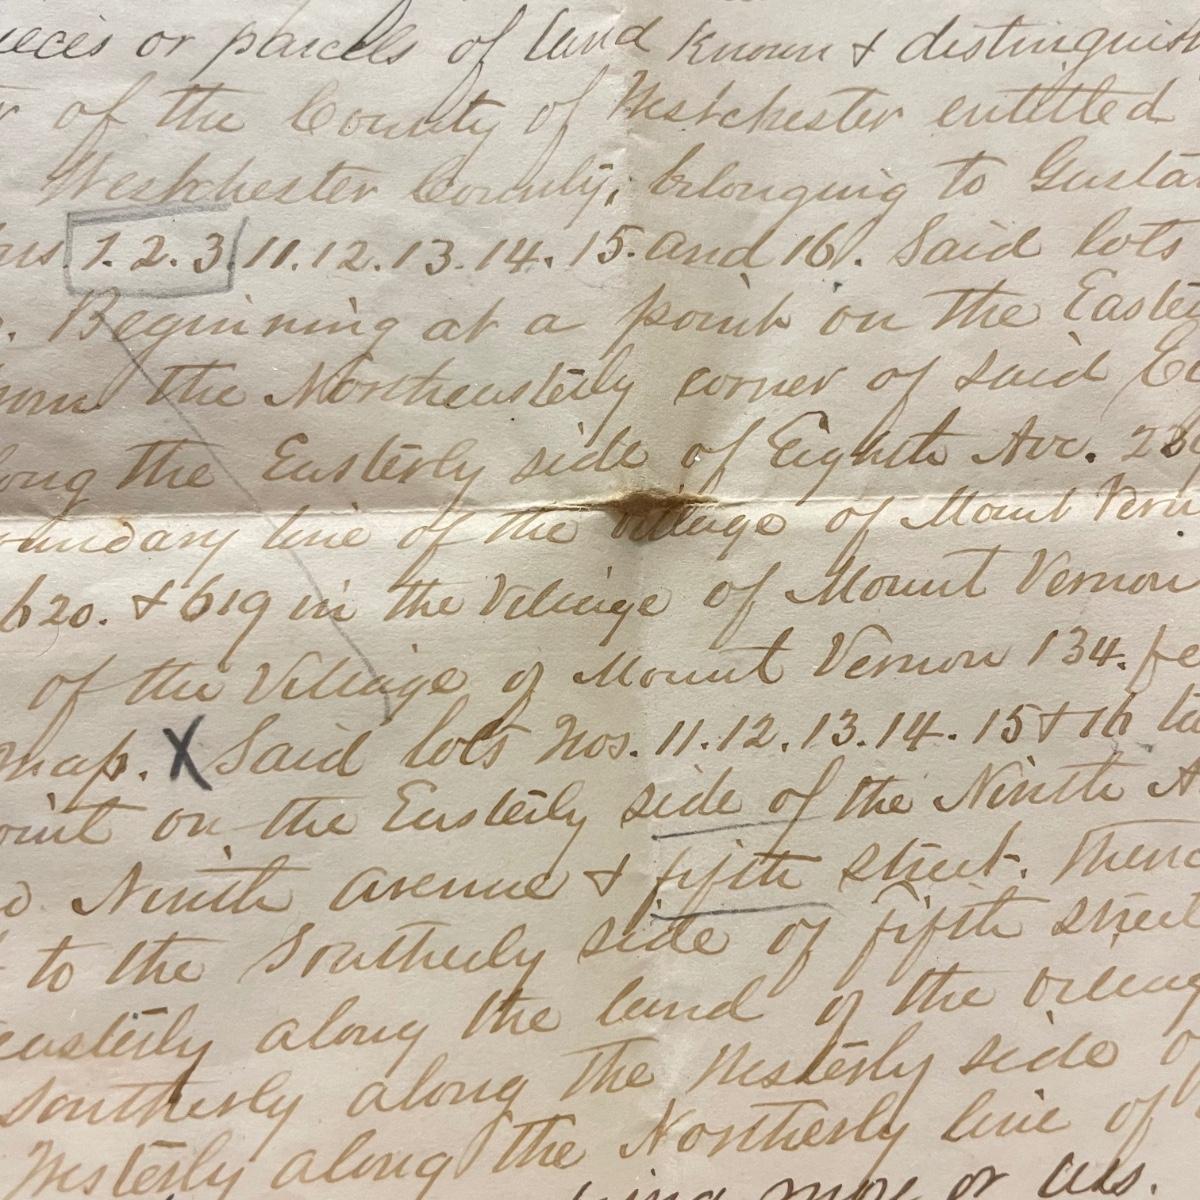 ieces or parcels of land Known & distinguish
r of the County of Westchester entitled
Westchester County, belonging to Gusta
1. 2. 3 11. 12. 13. 14. 15. and 16. Said lots
Beginning at a point on the Easte
the Northeasterly corner of said
long the Easterly side of Eighth Ave.
oundary line of the village of Mount Vern
620. & 619 in the Village of Mount Vernon
of the Village of Mount Vernon 134. fe
map. X Said lots Nos. 11. 12. 13. 14. 15 & 16
oint on the Easterly side of the Ninth A
Ninth avenue & fifth street. Thenc
to the Southerly side of fifth street
easterly along the land of the villag
southerly along the Westerly side o
Westerly along the Northerly line of
more or less.